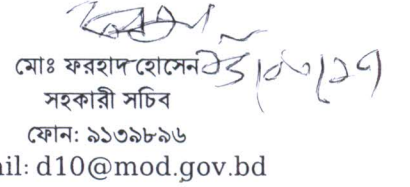 মোঃ ফরহাদ হোসেন
সহকারী সচিব
ফোন: ৯১৩৯৮৯৬
il: d10@mod.gov.bd